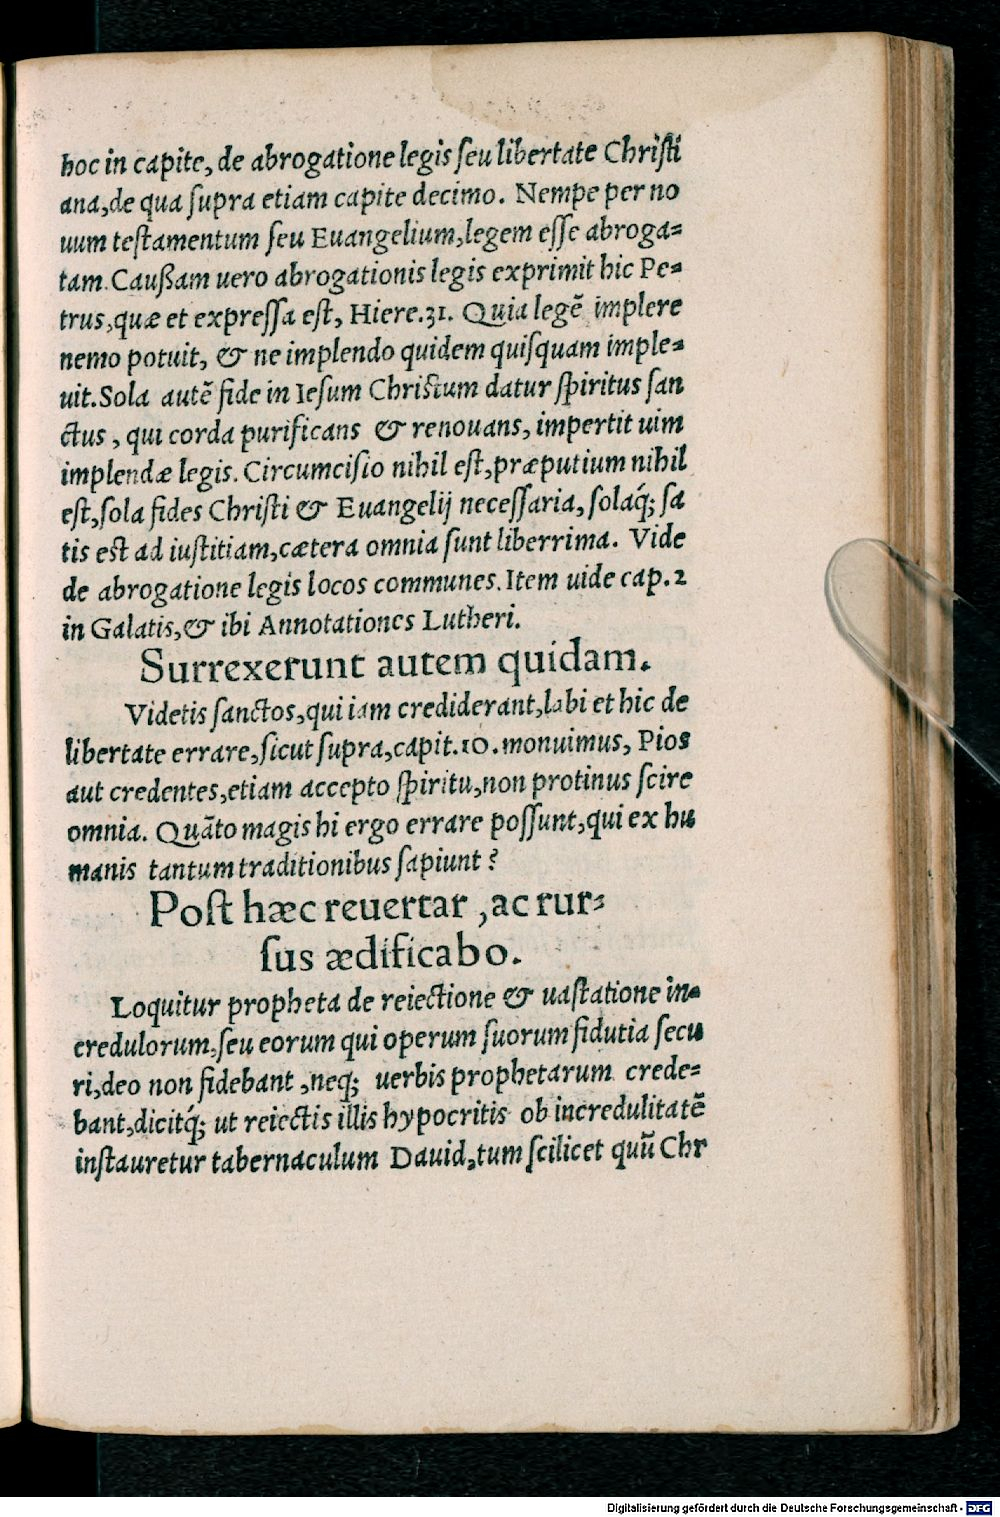 hoc in capite, de abrogatione legis ſeu libertate Chriſti
ana,de qua ſupra etiam capite decimo. Nempe per no
uum teſtamentum ſeu Euangelium,legem eſſe abroga⸗
tam. Cauſſam uero abrogationis legis exprimit hic Pe⸗
trus,quæ et expreſſa eſt, Hiere.31. Quia legẽ implere
nemo potuit, & ne implendo quidem quiſquam imple⸗
uit.Sola autẽ fide in Ieſum Chriſtum datur ſpiritus ſan
ctus , qui corda purificans & renouans, impertit uim
implendæ legis. Circumciſio nihil eſt,præputium nihil
eſt,ſola fides Chriſti & Euangelij neceſſaria, ſolaq́; ſa
tis eſt ad iuſtitiam,cætera omnia ſunt liberrima. Vide
de abrogatione legis locos communes. Item uide cap.2
in Galatis,& ibi Annotationes Lutheri.
Surrexerunt autem quidam.
Videtis ſanctos,qui iam crediderant,labi et hic de
libertate errare,ſicut ſupra,capit.10.monuimus, Pios
aut credentes,etiam accepto ſpiritu,non protinus ſcire
omnia. Quãto magis hi ergo errare poſſunt,qui ex hu
manis tantum traditionibus ſapiunt?
Poſt hæc reuertar ,ac rur⸗
ſus ædificabo.
Loquitur propheta de reiectione & uaſtatione in⸗
credulorum,ſeu eorum qui operum ſuorum fidutia ſecu
ri,deo non fidebant ,neq; uerbis prophetarum crede⸗
bant,dicitq́; ut reiectis illis hypocritis ob incredulitatẽ
inſtauretur tabernaculum Dauid,tum ſcilicet quũ Chr
Digitalisierung gefördert durch die Deutsche Forschungsgemeinschaft - DFG